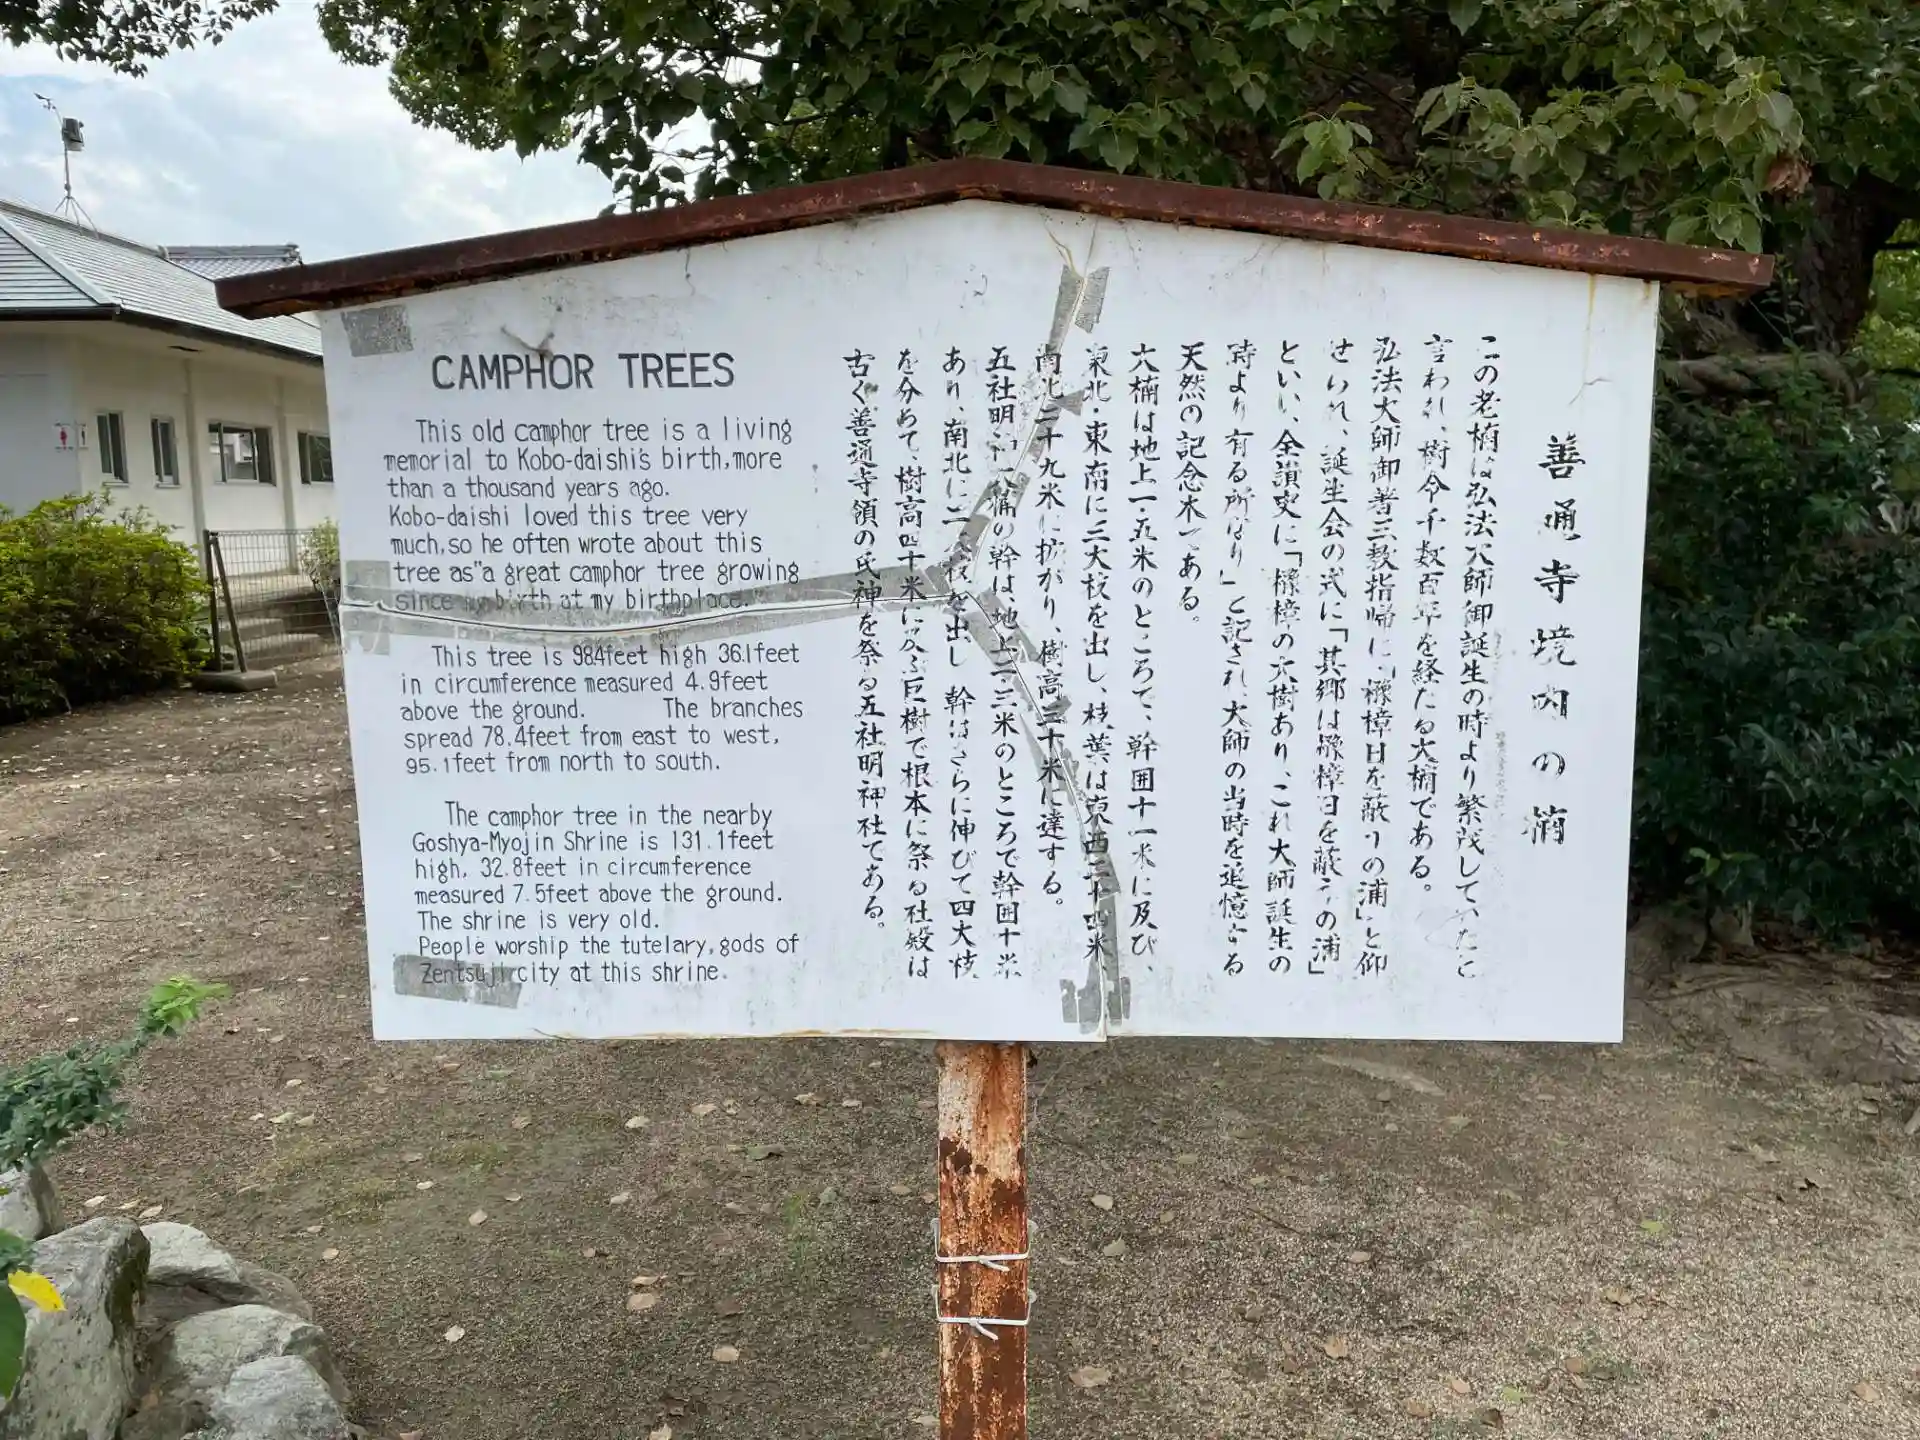 CAMPHOR TREES
This old camphor tree is a living
memorial to Kobo-daishi's birth, more
than a thousand years ago.
Kobo-daishi loved this tree very
much, so he often wrote about this
tree as "a great camphor tree growing
since my birth at my birthplace."
This tree is 98.4feet high 36.1feet
in circumference measured 4.9feet
above the ground. The branches
spread 78.4feet from east to west,
95.1feet from north to south.
The camphor tree in the nearby
Goshya-Myojin Shrine is 131.1feet
high, 32.8feet in circumference
measured 7.5feet above the ground.
The shrine is very old.
People worship the tutelary, gods of
Zentsuji city at this shrine.
善通寺境内の楠
この老楠は弘法大師御誕生の時より繁茂していたと
言われ、樹令千数百年を経たる大楠である。
弘法大師御著三教指帰に「櫲樟日を蔽うの浦」と仰
せられ、誕生会の式に「其郷は櫲樟日を蔽うの浦」
といい、全讃史に「櫲樟の大樹あり、これ大師誕生の
時より有る所なり」と記され、大師の当時を追憶する
天然の記念木である。
大楠は地上一・五米のところで、幹囲十一米に及び、
東北・東南に三大枝を出し、枝葉は東西二十四米
南北二十九米に拡がり、樹高三十米に達する。
五社明神大楠の幹は、地上二・三米のところで幹囲十米
あり、南北に二大枝を出し 幹はさらに伸びて四大枝
を分あて、樹高四十米に及ぶ巨樹で根本に祭る社殿は
古く善通寺領の氏神を祭る五社明神社である。